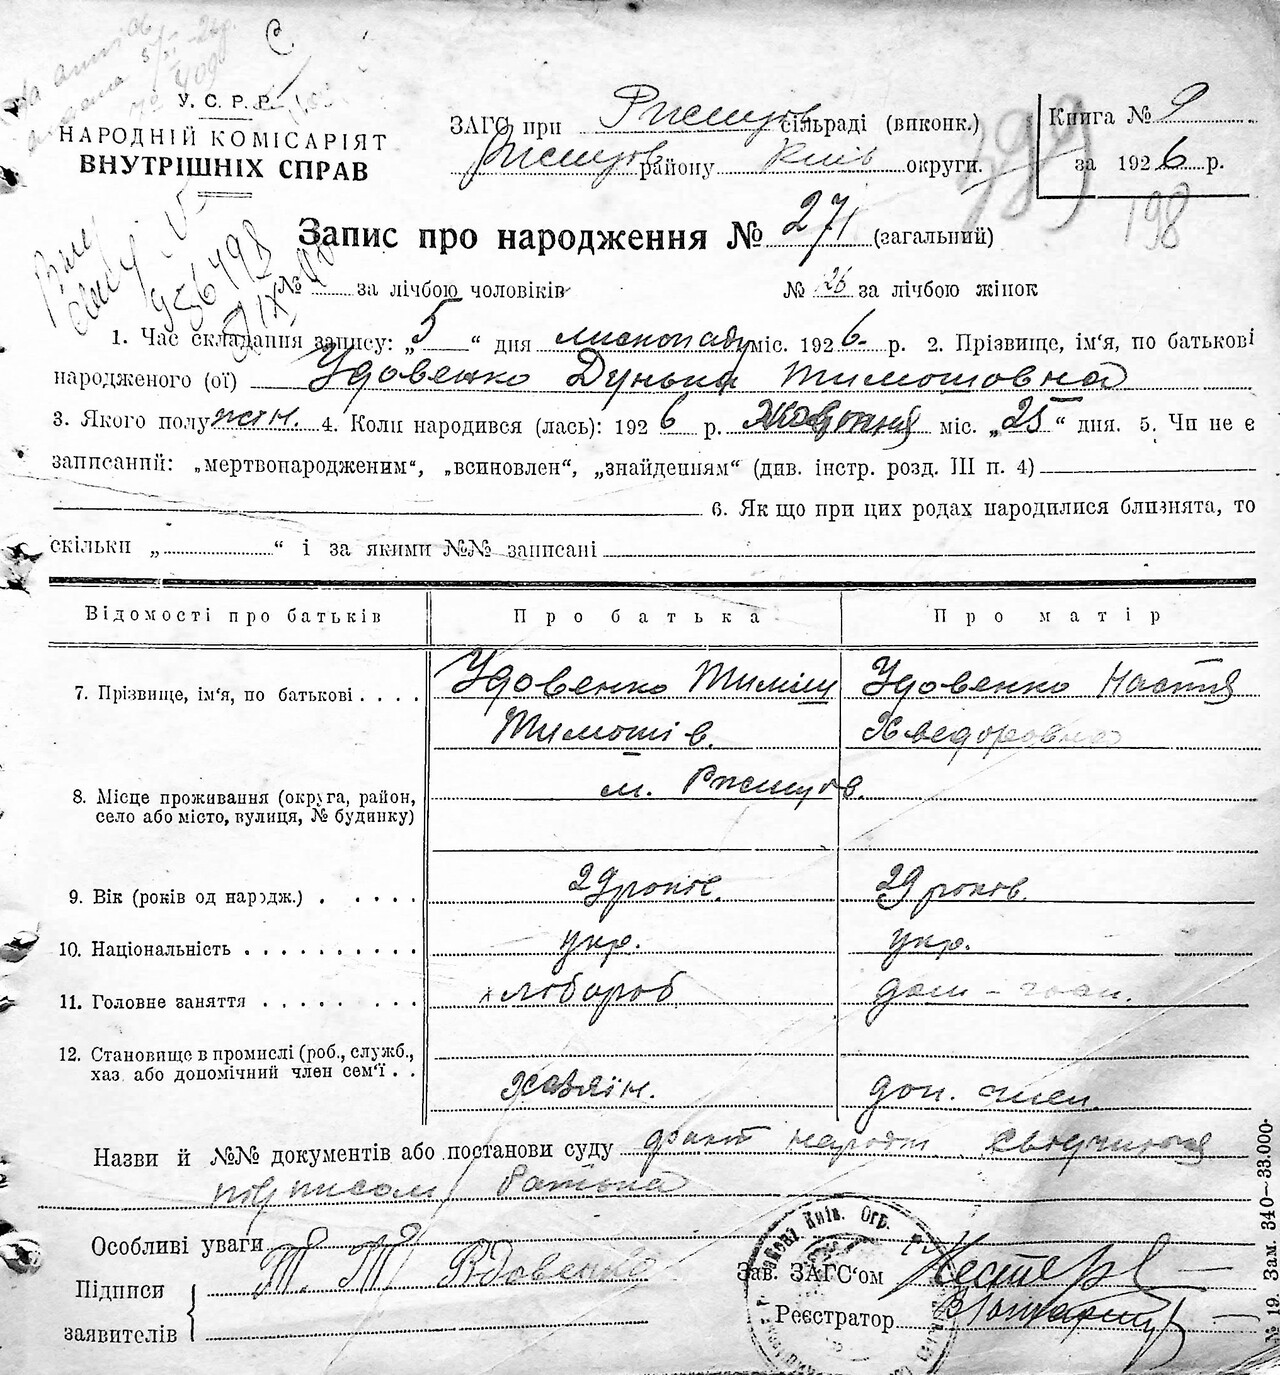 У.С.Р.Р.
НАРОДНІЙ КОМІСАРІЯТ
ВНУТРІШНІХ СПРАВ
ЗАГС при Ржищів сільраді (виконк.)
Ржищів району Київ округи.
Книга № 9
за 1926 р.
399
198
Запис про народження № 271 (загальний)
№ за лічбою чоловіків № 126 за лічбою жінок
1. Час складання запису: „5“ дня листопаду міс. 1926 р. 2. Прізвище, ім'я, по батькові
народженого (ої) Удовенко Дунька Тимошовна
3. Якого полу жін. 4. Коли народився (лась): 1926 р. Жовтня міс. „25“ дня. 5. Чи не є
записаний: „мертвонародженим“, „всиновлен“, „знайденням“ (див. інстр. розд. III п. 4)
6. Як що при цих родах народилися близнята, то
скільки „ “ і за якими №№ записані
Відомості про батьків Про батька Про матір
7. Прізвище, ім'я, по батькові . . . . Удовенко Тиміш Удовенко Настя
Тимошів. Хведоровна
8. Місце проживання (округа, район, м. Ржищів.
село або місто, вулиця, № будинку)
9. Вік (років од народж.) . . . . . 29 років. 29 років.
10. Національність . . . . . . . . . . укр. укр.
11. Головне заняття . . . . . . . . хлібороб дом-госп.
12. Становище в промислі (роб., служб.,
хаз. або допомічний член сем'ї . . Хазяїн. доп. член.
Назви й №№ документів або постанови суду факт народж. свідчиться
підписом батька
Особливі уваги
Підписи Т. Т. Вдовенко
заявителів
Зав. ЗАГС'ом
Реєстратор
Київ. Окр.
№ 19. Зам. 340—33.000.